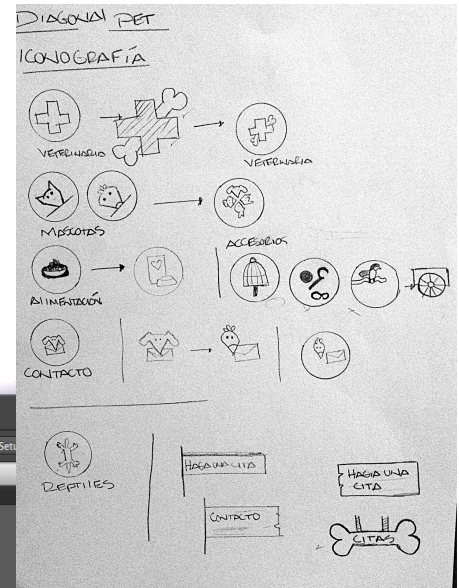 DIAGONAL PET
ICONOGRAFÍA
VETERINARIO
VETERINARIA
MASCOTAS
ACCESORIOS
ALIMENTACIÓN
CONTACTO
REPTILES
HAGA UNA CITA
CONTACTO
HAGA UNA
CITA
CITAS
Setu